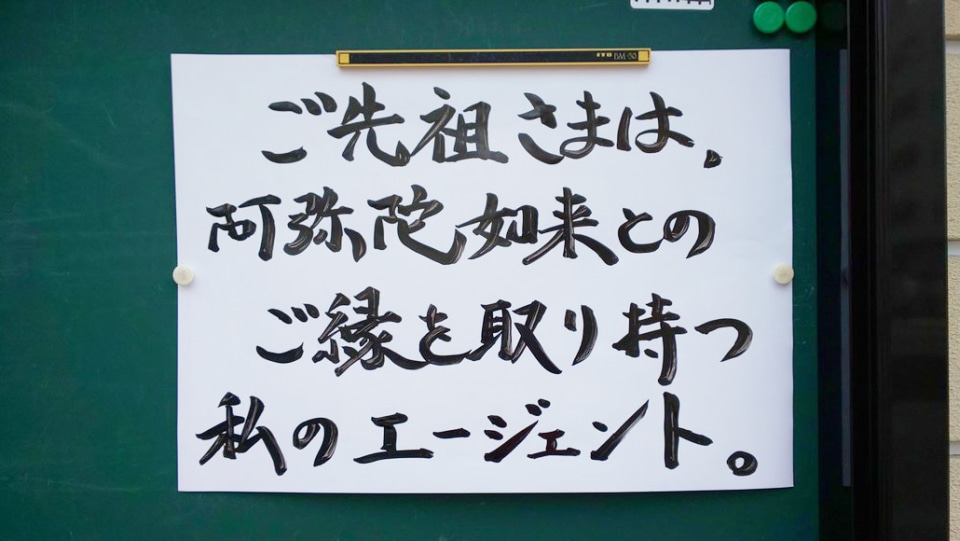 ITB BM-50
ご先祖さまは、
阿弥陀如来との
ご縁を取り持つ
私のエージェント。